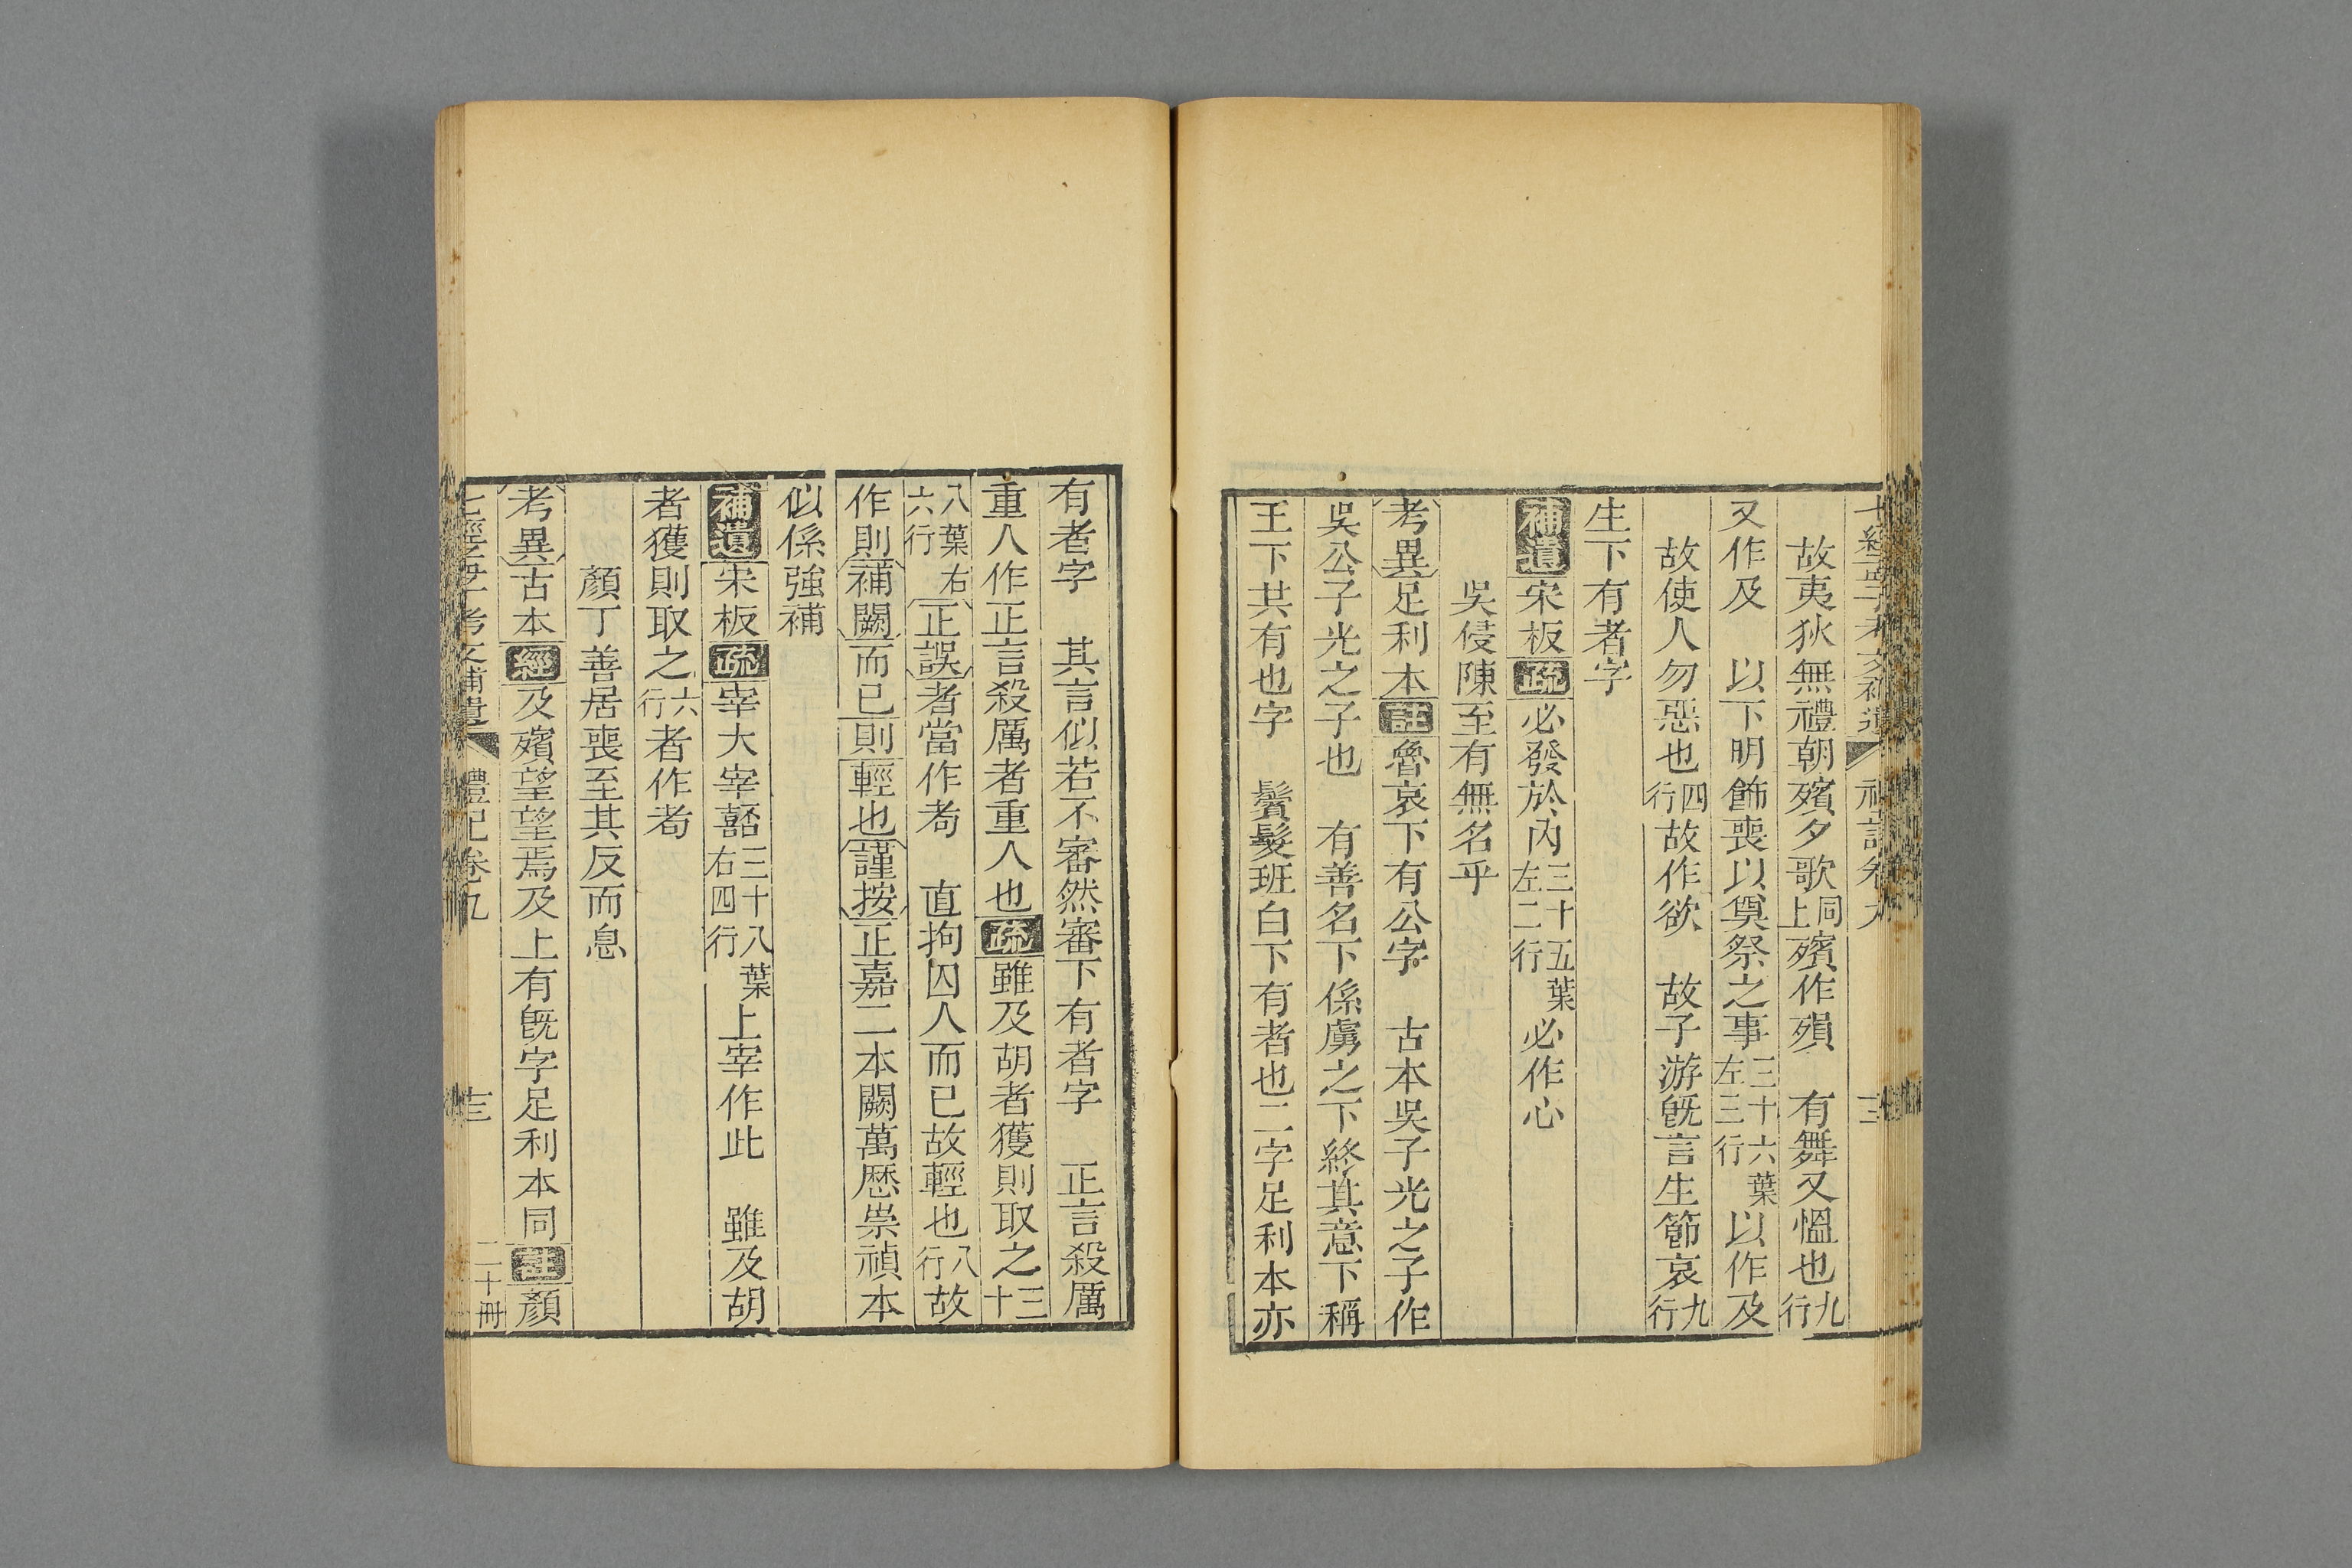 故夷狄無禮朝殯夕歌同上殯作殞　有舞又慍也九行
又作及　以下明飾喪以奠祭之事三十六葉左三行以作及
故使人勿惡也四行故作欲　故子游旣言生節哀九行
生下有者字
補遺宋板疏必發於內三十五葉左二行必作心
吳侵陳至有無名乎
考異足利本註魯哀下有公字　古本吳子光之子作
吳公子光之子也　有善名下係虜之下終其意下稱
王下共有也字　鬢髮班白下有者也二字足利本亦
有者字　其言似若不審然審下有者字　正言殺厲
重人作正言殺厲者重人也疏雖及胡者獲則取之三十
八葉右六行正誤者當作耇　直拘囚人而已故輕也八行故
作則補闕而已則輕也謹按正嘉二本闕萬歷崇禎本
似係強補
補遺宋板疏宰大宰嚭三十八葉右四行上宰作此　雖及胡
者獲則取之六行者作耇
顏丁善居喪至其反而息
考異古本經及殯望望焉及上有旣字足利本同註顏
七經孟子考文補遺　禮記卷九　十三　二十冊